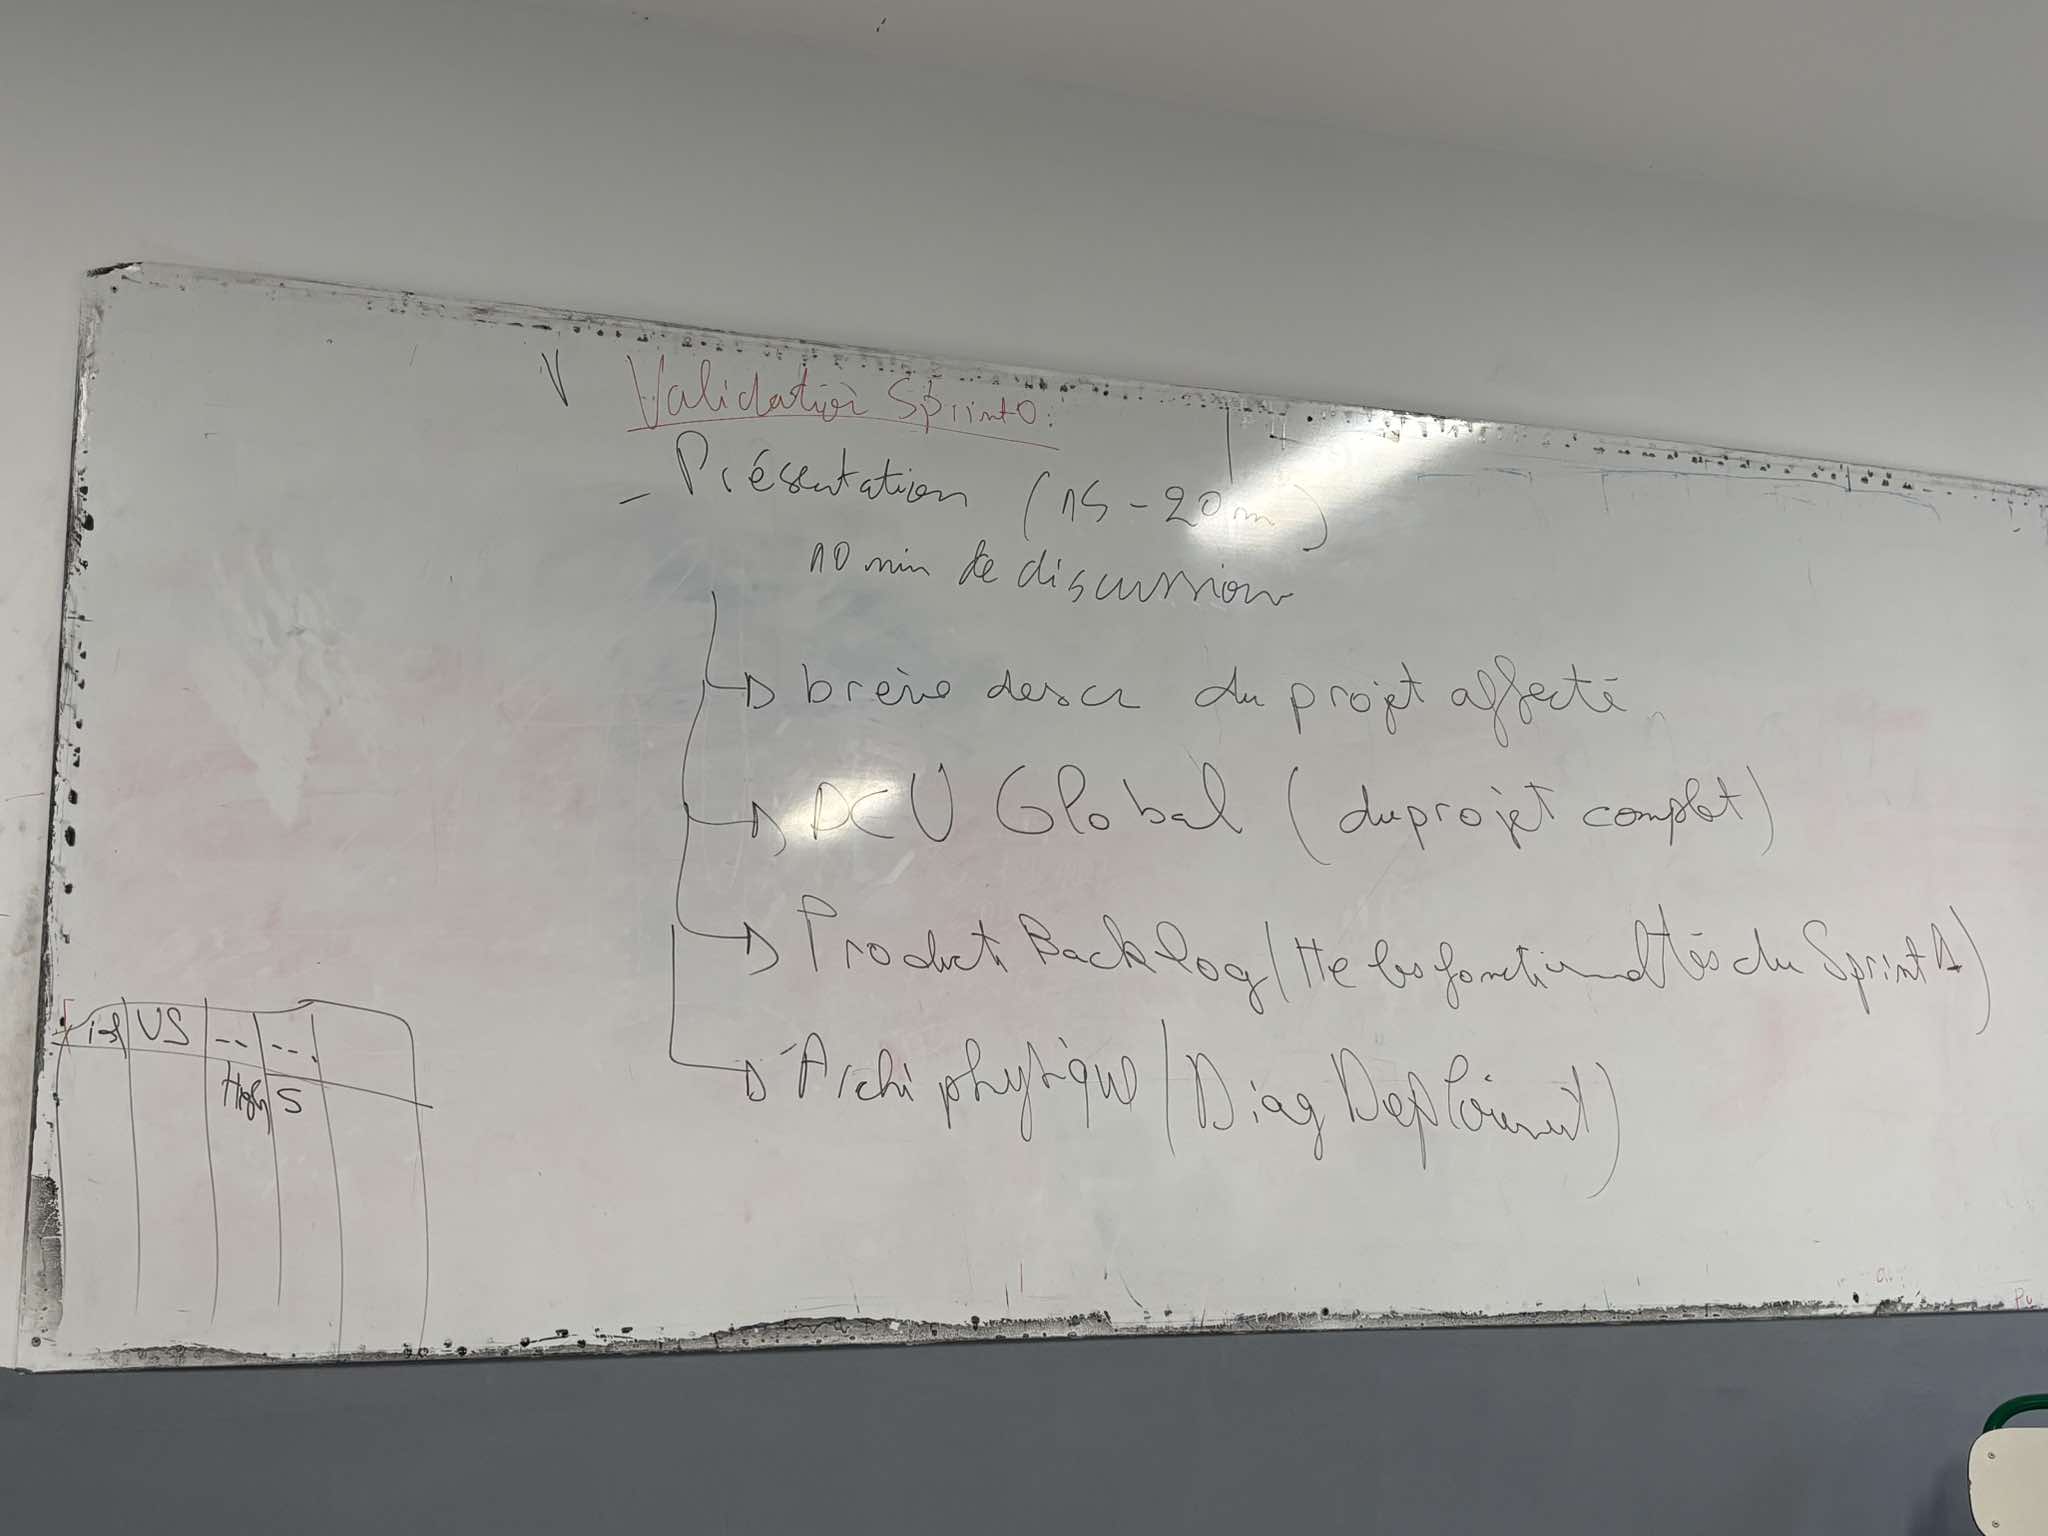 Validation Sprint 0:
- Présentation (15 - 20 m)
10 min de discussion
brève descr du projet affecté
DCU Global (du projet complet)
Product Backlog (Tte les fonctionaltés du Sprint 1)
Archi physique (Diag Deploiement)
id US -- ---
High 5